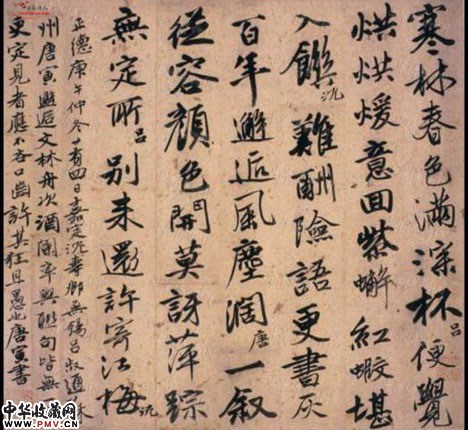 寒林春色滿深杯呂便覺
烘烘煖意回紫蠏紅蝦堪
入饌沈難酬險語更書灰
百年邂逅風塵濶唐一叙
從容顏色開莫訝萍踪
無定所呂别来還許寄江梅沈
正德庚午仲冬廿有四日嘉定沈壽卿無錫呂叔通蘇
州唐寅邂逅文林舟次酒闌率興聯句皆無
更定見者應不吝口齒許其狂且愚也唐寅書
中华收藏网
WWW.PMV.CN